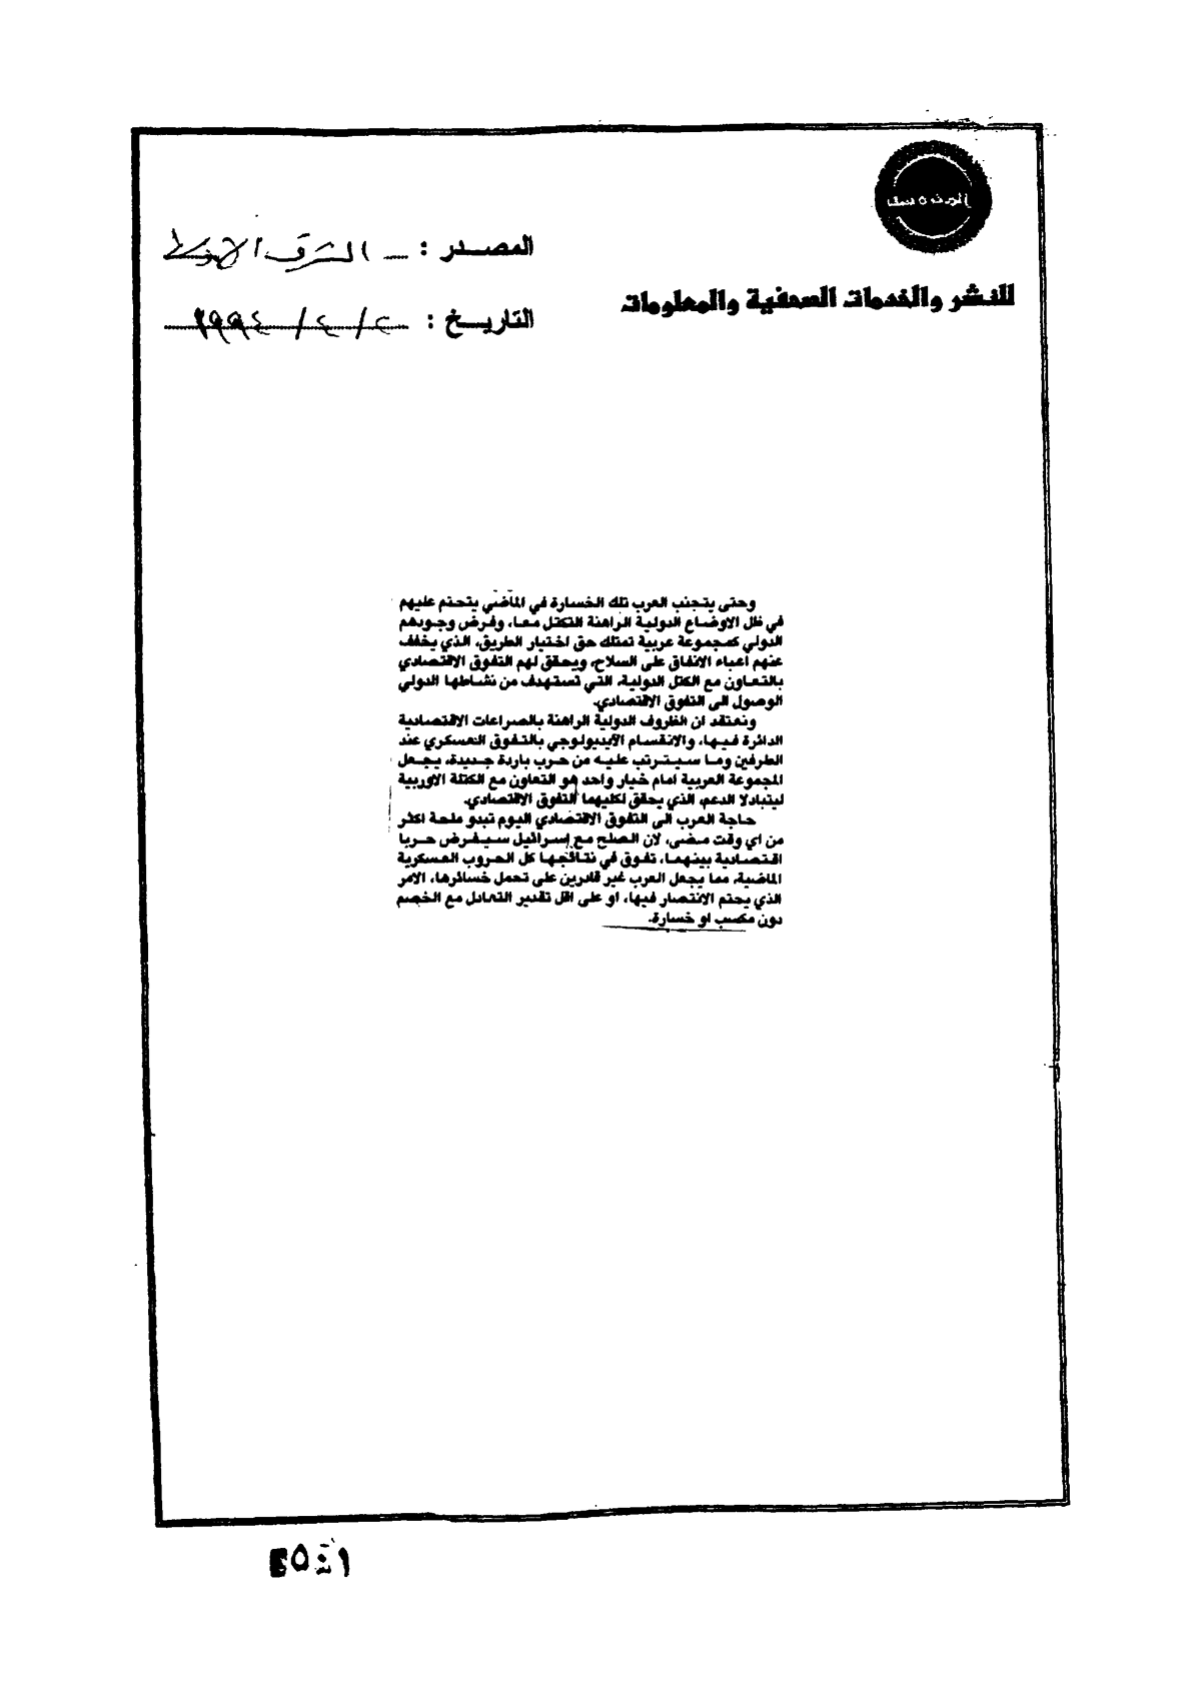 للنشر والخدمات الصحفية والمعلومات
المصدر : الشرق الاوسط
التاريخ : ٢ / ٤ / ١٩٩٤
وحتى يتجنب العرب تلك الخسارة في الماضي يتحتم عليهم
في ظل الاوضاع الدولية الراهنة التكتل معا، وفرض وجودهم
الدولي كمجموعة عربية تمتلك حق اختيار الطريق، الذي يخفف
عنهم اعباء الانفاق على السلاح، ويحقق لهم التفوق الاقتصادي
بالتعاون مع الكتل الدولية، التي تستهدف من نشاطها الدولي
الوصول الى التفوق الاقتصادي.
ونعتقد ان الظروف الدولية الراهنة بالصراعات الاقتصادية
الدائرة فيها، والانقسام الايديولوجي بالتفوق العسكري عند
الطرفين وما سيترتب عليه من حرب باردة جديدة، يجعل
المجموعة العربية امام خيار واحد هو التعاون مع الكتلة الاوربية
ليتبادلا الدعم، الذي يحقق لكليهما التفوق الاقتصادي.
حاجة العرب الى التفوق الاقتصادي اليوم تبدو ملحة اكثر
من اي وقت مضى، لان الصلح مع إسرائيل سيفرض حربا
اقتصادية بينهما، تفوق في نتائجها كل الحروب العسكرية
الماضية، مما يجعل العرب غير قادرين على تحمل خسائرها، الامر
الذي يحتم الانتصار فيها، او على اقل تقدير التعادل مع الخصم
دون مكسب او خسارة.